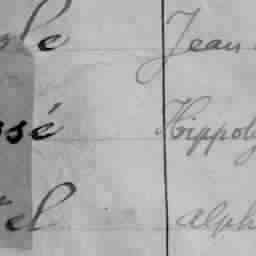 ole Jean
ssé Hippoly
el alph